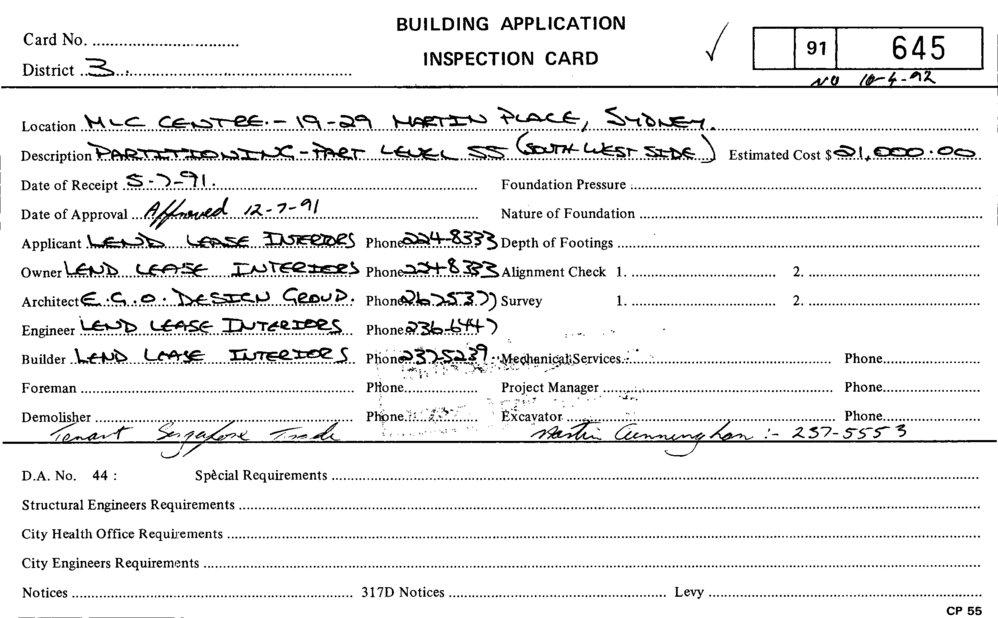 BUILDING APPLICATION
INSPECTION CARD
Card No.
91 645
District 3
NO 10-4-92
Location MLC CENTRE - 19-29 MARTIN PLACE, SYDNEY.
Description PARTITIONING - PART LEVEL 55 (SOUTH WEST SIDE) Estimated Cost $21,000.00
Date of Receipt 5-7-91. Foundation Pressure
Date of Approval Approved 12-7-91 Nature of Foundation
Applicant LEND LEASE INTERIORS Phone 224-8333 Depth of Footings
Owner LEND LEASE INTERIORS Phone 224-8333 Alignment Check 1. 2.
Architect E.G.O. DESIGN GROUP. Phone Survey 1. 2.
Engineer LEND LEASE INTERIORS Phone 236-6447
Builder LEND LEASE INTERIORS Phone 237-5239 Mechanical Services Phone
Foreman Phone Project Manager Phone
Demolisher Phone Excavator Phone
Tenant Singapore Trade Martin Cunningham :- 237-5553
D.A. No. 44 : Special Requirements
Structural Engineers Requirements
City Health Office Requirements
City Engineers Requirements
Notices 317D Notices Levy
CP 55